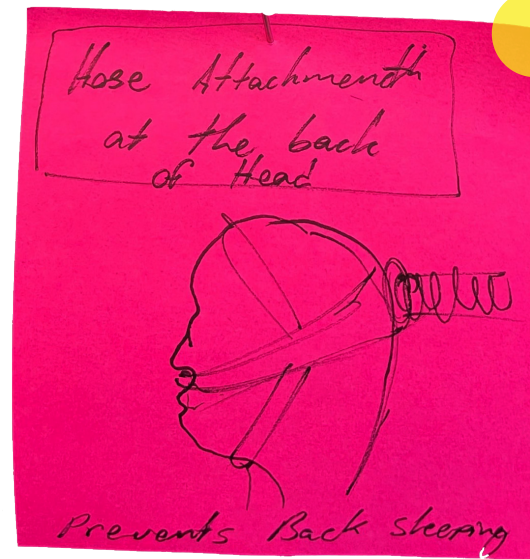 Hose Attachment
at the back
of Head
Prevents Back sleeping